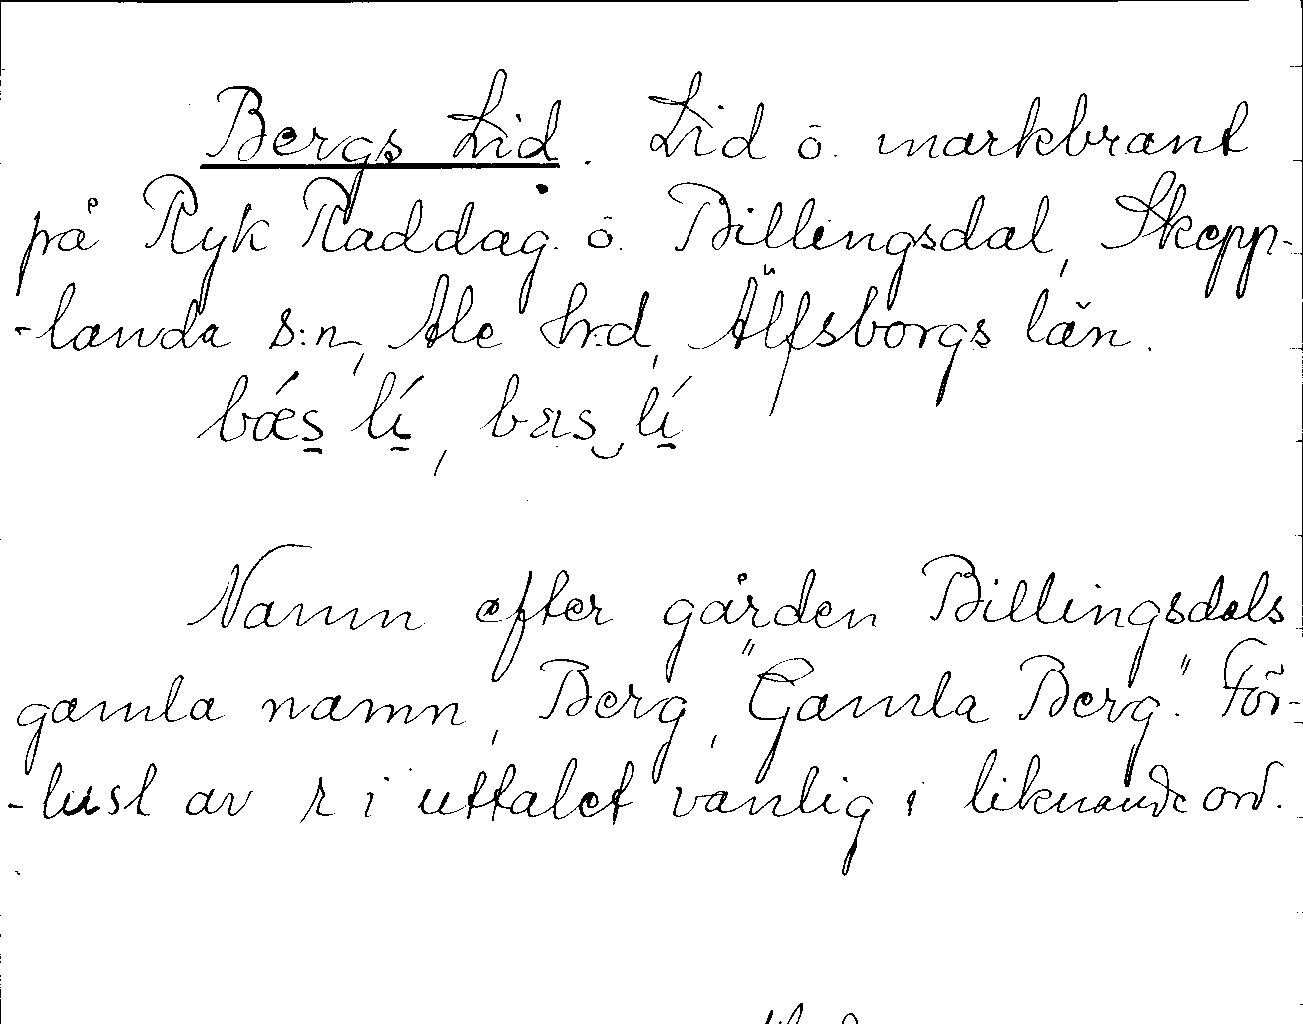 Bergs Lid. Lid o. markbrant
på Ryk Raddag. o. Billingsdal, Skepp-
-landa s:n, Ale hrd, Älfsborgs län.
bǽs lí, bæs lí
Namn efter gården Billingsdals
gamla namn, Berg, "Gamla Berg". För-
-lust av r i uttalet vanlig i liknande ord.